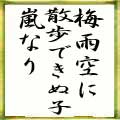 梅雨空に
散歩できぬ子
嵐なり